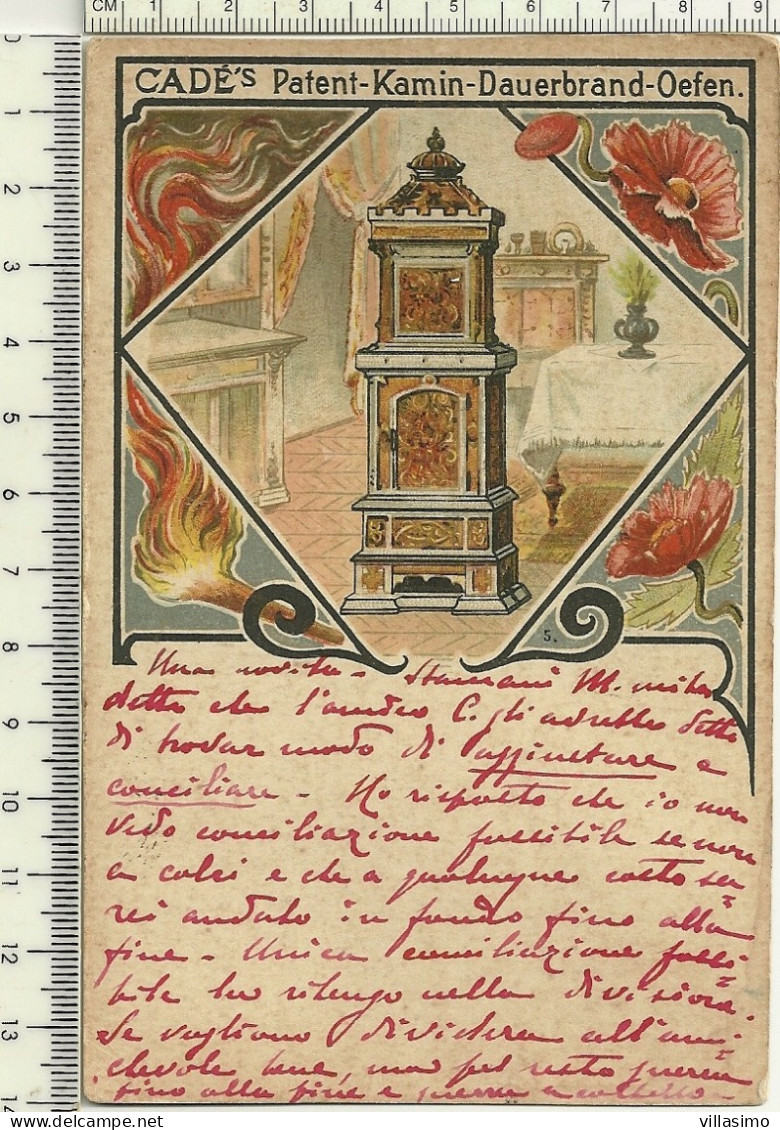 CM 1 2 3 4 5 6 7 8 9
0 1 2 3 4 5 6 7 8 9 10 11 12 13 14
CADÉ'S Patent-Kamin-Dauerbrand-Oefen.
5.
Una novità - Stamani M. mi ha
detto che l'amico C. gli avrebbe detto
di trovar modo di assinetare e
conciliare - Ho risposto che io non
vedo conciliazione possibile se non
a colpi e che a qualunque costo sa=
rei andato in fondo fino alla
fine - Unica conciliazione possi=
bile la ritengo nella divisione.
Se vogliono dividere all'ami=
chevole bene, ma pel resto guerra
fino alla fine e guerra a coltello -
villasimo